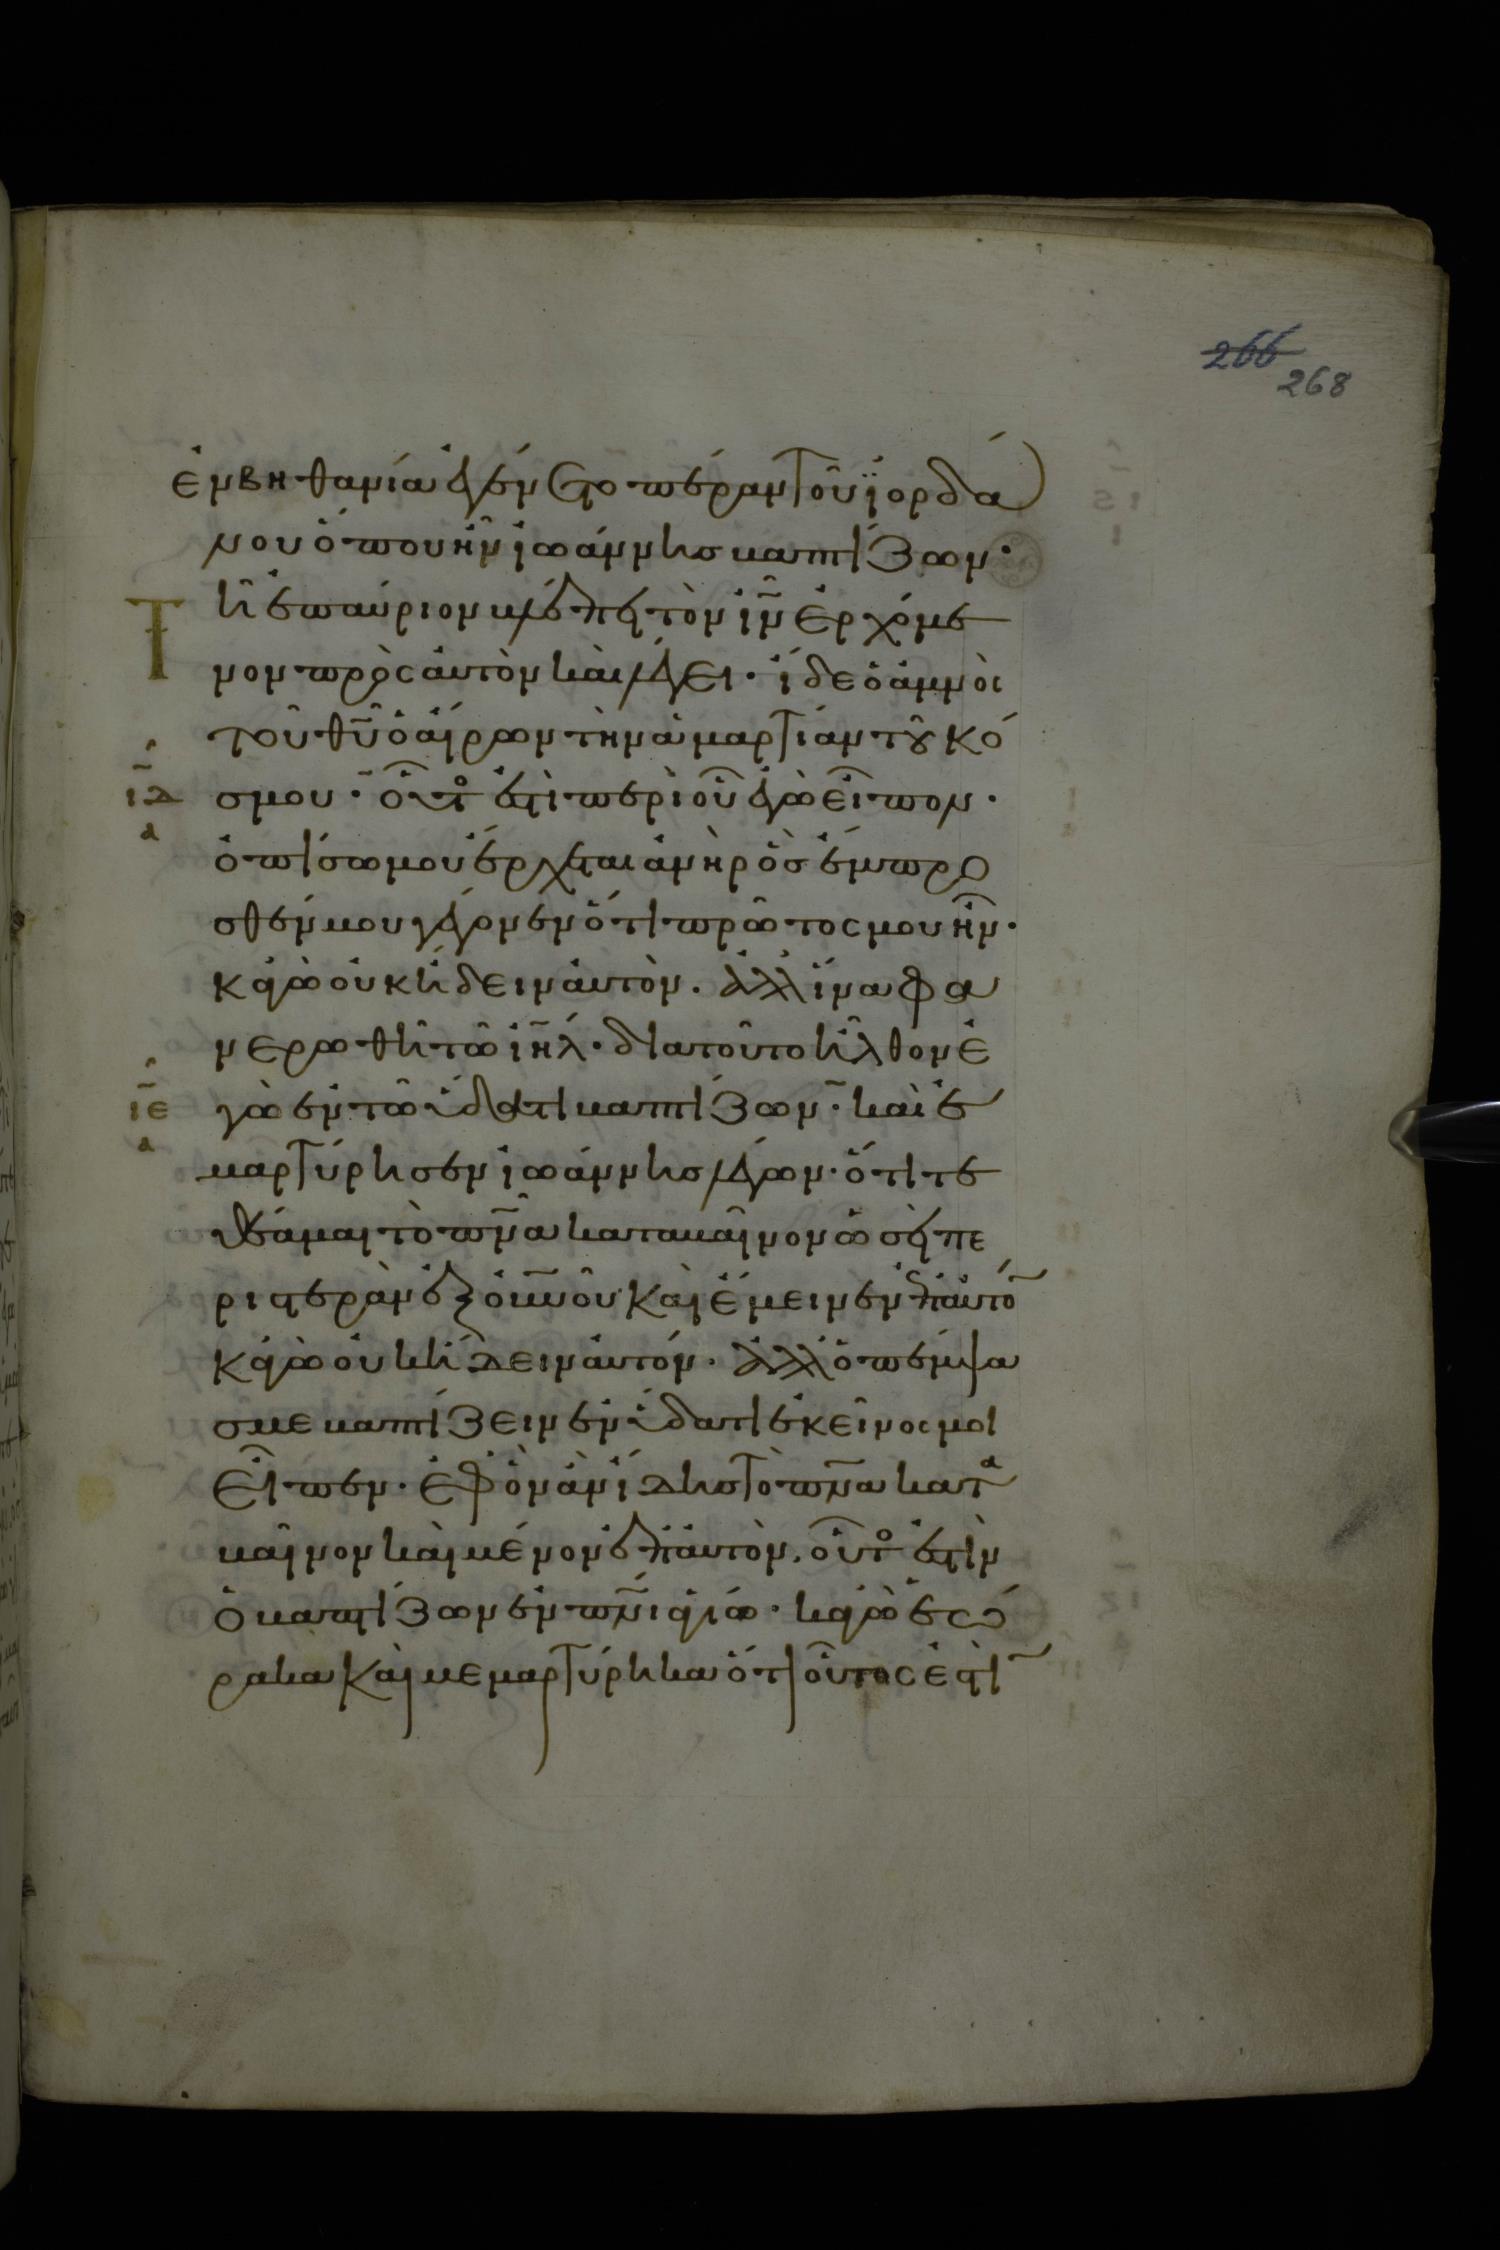 266
268
ἐν βηθανία ἐγένετο πέραν τοῦ ϊορδά
νου ὅπου ἦν ἰωάννης βαπτίζων·
Τῆ ἐπαύριον βλέπει τὸν ἰν̄ ἐρχόμε
νον πρὸς αὐτὸν καὶ λέγει· ἴδε ὁ ἀμνὸς
τοῦ θῡ ὁ αἴρων τὴν ἁμαρτίαν τοῦ κό
ιδ σμου· οὗτός ἐστι περὶ οὗ ἐγὼ εἶπον·
α
ὀπίσω μου ἔρχεται ἀνὴρ ὃς ἔμπρο
σθέν μου γέγονεν ὅτι πρῶτος μου ἦν·
κἀγὼ οὐκ ἤδειν αὐτὸν. ἀλλ' ἵνα φα
νερωθῆ τῶ ἰηλ̄· διατοῦτο ἦλθον ἐ
ιε γὼ ἐν τῶ ὕδατι βαπτίζων· καὶ ἐ
α
μαρτύρησεν ἰωάννης λέγων· ὅτι τε
θέαμαι τὸ πνᾱ καταβαῖνον ὡσεὶ πε
ριστερὰν ἐξ οὐνοῦ καὶ ἔμεινεν ἐπ' αὐτό̄
κἀγὼ οὐκ ἤδειν αὐτόν. ἀλλ' ὁ πέμψα
σ με βαπτίζειν ἐν ὕδατι ἐκεῖνος μοι
εἶπεν· ἐφ' ὃν ἂν ἴδης τὸ πνᾱ κατα
βαῖνον καὶ μένον ἐπ' αὐτὸν, οὗτός ἐστὶν
ὁ βαπτίζων ἐν πνῑ ἁγίω· κἀγὼ ἑώ
ρακα καὶ μεμαρτύρηκα ὅτι οὗτος ἐστὶ̄